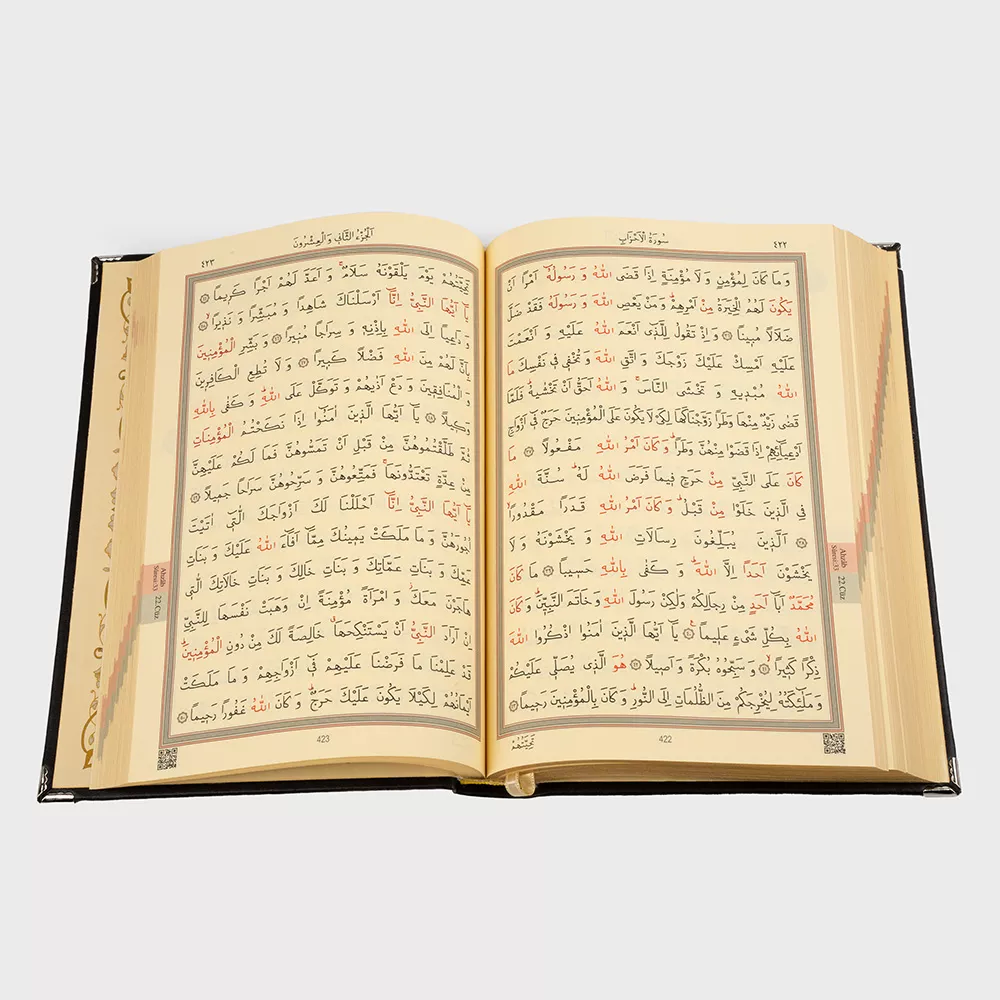 سُورَةُ الْاَحْزَابِ
٤٢٢
وَمَا كَانَ لِمُؤْمِنٍ وَلَا مُؤْمِنَةٍ اِذَا قَضَى اللّٰهُ وَرَسُولُهُٓ اَمْرًا اَنْ
يَكُونَ لَهُمُ الْخِيَرَةُ مِنْ اَمْرِهِمْۜ وَمَنْ يَعْصِ اللّٰهَ وَرَسُولَهُ فَقَدْ ضَلَّ
ضَلَالًا مُبٖينًا ۞ وَاِذْ تَقُولُ لِلَّذٖٓى اَنْعَمَ اللّٰهُ عَلَيْهِ وَاَنْعَمْتَ
عَلَيْهِ اَمْسِكْ عَلَيْكَ زَوْجَكَ وَاتَّقِ اللّٰهَ وَتُخْفٖى فٖى نَفْسِكَ مَا
اللّٰهُ مُبْدٖيهِ وَتَخْشَى النَّاسَۚ وَاللّٰهُ اَحَقُّ اَنْ تَخْشٰيهُۜ فَلَمَّا
قَضٰى زَيْدٌ مِنْهَا وَطَرًا زَوَّجْنَاكَهَا لِكَىْ لَا يَكُونَ عَلَى الْمُؤْمِنٖينَ حَرَجٌ فٖٓى اَزْوَاجِ
اَدْعِيَٓائِهِمْ اِذَا قَضَوْا مِنْهُنَّ وَطَرًاۜ وَكَانَ اَمْرُ اللّٰهِ مَفْعُولًا ۞ مَا
كَانَ عَلَى النَّبِىِّ مِنْ حَرَجٍ فٖيمَا فَرَضَ اللّٰهُ لَهُۜ سُنَّةَ اللّٰهِ
فِى الَّذٖينَ خَلَوْا مِنْ قَبْلُۜ وَكَانَ اَمْرُ اللّٰهِ قَدَرًا مَقْدُورًاۙ
۞ اَلَّذٖينَ يُبَلِّغُونَ رِسَالَاتِ اللّٰهِ وَيَخْشَوْنَهُ وَلَا
يَخْشَوْنَ اَحَدًا اِلَّا اللّٰهَۜ وَكَفٰى بِاللّٰهِ حَسٖيبًا ۞ مَا كَانَ
مُحَمَّدٌ اَبَٓا اَحَدٍ مِنْ رِجَالِكُمْ وَلٰكِنْ رَسُولَ اللّٰهِ وَخَاتَمَ النَّبِيّٖنَۜ وَكَانَ
اللّٰهُ بِكُلِّ شَىْءٍ عَلٖيمًا ۞ يَٓا اَيُّهَا الَّذٖينَ اٰمَنُوا اذْكُرُوا اللّٰهَ
ذِكْرًا كَثٖيرًاۙ ۞ وَسَبِّحُوهُ بُكْرَةً وَاَصٖيلًا ۞ هُوَ الَّذٖى يُصَلّٖى عَلَيْكُمْ
وَمَلٰٓئِكَتُهُ لِيُخْرِجَكُمْ مِنَ الظُّلُمَاتِ اِلَى النُّورِۜ وَكَانَ بِالْمُؤْمِنٖينَ رَحٖيمًا ۞
تَحِيَّتُهُمْ
422
Ahzâb
Sûresi:33
22.Cüz
اَلْجُزْءُ الثَّانٖى وَالْعِشْرُونَ
٤٢٣
تَحِيَّتُهُمْ يَوْمَ يَلْقَوْنَهُ سَلَامٌۚ وَاَعَدَّ لَهُمْ اَجْرًا كَرٖيمًا ۞
يَٓا اَيُّهَا النَّبِىُّ اِنَّٓا اَرْسَلْنَاكَ شَاهِدًا وَمُبَشِّرًا وَنَذٖيرًاۙ ۞
وَدَاعِيًا اِلَى اللّٰهِ بِاِذْنِهٖ وَسِرَاجًا مُنٖيرًا ۞ وَبَشِّرِ الْمُؤْمِنٖينَ
بِاَنَّ لَهُمْ مِنَ اللّٰهِ فَضْلًا كَبٖيرًا ۞ وَلَا تُطِعِ الْكَافِرٖينَ
وَالْمُنَافِقٖينَ وَدَعْ اَذٰيهُمْ وَتَوَكَّلْ عَلَى اللّٰهِۜ وَكَفٰى بِاللّٰهِ
وَكٖيلًا ۞ يَٓا اَيُّهَا الَّذٖينَ اٰمَنُٓوا اِذَا نَكَحْتُمُ الْمُؤْمِنَاتِ
ثُمَّ طَلَّقْتُمُوهُنَّ مِنْ قَبْلِ اَنْ تَمَسُّوهُنَّ فَمَا لَكُمْ عَلَيْهِنَّ
مِنْ عِدَّةٍ تَعْتَدُّونَهَاۚ فَمَتِّعُوهُنَّ وَسَرِّحُوهُنَّ سَرَاحًا جَمٖيلًا ۞
يَٓا اَيُّهَا النَّبِىُّ اِنَّٓا اَحْلَلْنَا لَكَ اَزْوَاجَكَ الّٰتٖٓى اٰتَيْتَ
اُجُورَهُنَّ وَمَا مَلَكَتْ يَمٖينُكَ مِمَّٓا اَفَٓاءَ اللّٰهُ عَلَيْكَ وَبَنَاتِ
عَمِّكَ وَبَنَاتِ عَمَّاتِكَ وَبَنَاتِ خَالِكَ وَبَنَاتِ خَالَاتِكَ الّٰتٖى
هَاجَرْنَ مَعَكَۘ وَامْرَاَةً مُؤْمِنَةً اِنْ وَهَبَتْ نَفْسَهَا لِلنَّبِىِّ
اِنْ اَرَادَ النَّبِىُّ اَنْ يَسْتَنْكِحَهَا خَالِصَةً لَكَ مِنْ دُونِ الْمُؤْمِنٖينَۜ
قَدْ عَلِمْنَا مَا فَرَضْنَا عَلَيْهِمْ فٖٓى اَزْوَاجِهِمْ وَمَا مَلَكَتْ
اَيْمَانُهُمْ لِكَيْلَا يَكُونَ عَلَيْكَ حَرَجٌۜ وَكَانَ اللّٰهُ غَفُورًا رَحٖيمًا ۞
423
Ahzâb
Sûresi:33
22.Cüz